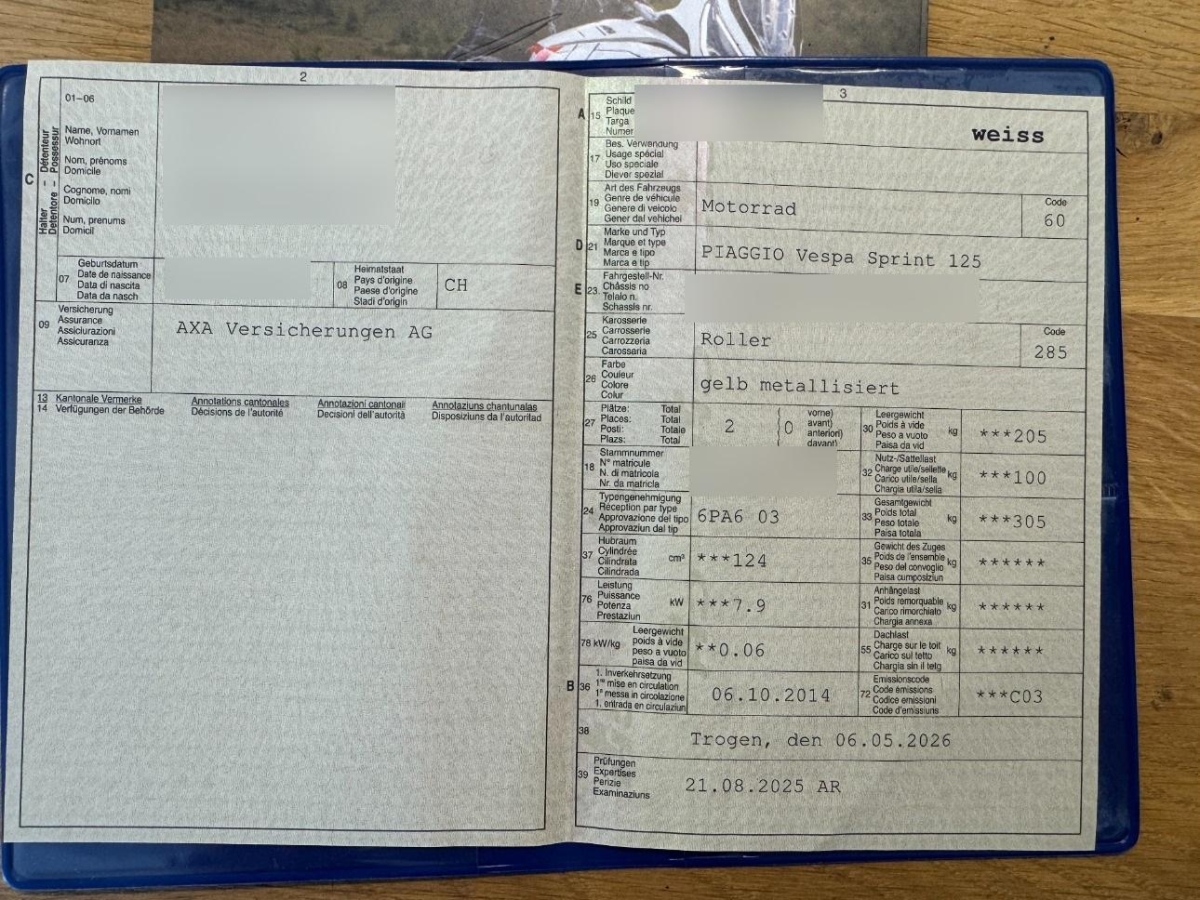 2
01-06
Halter - Détenteur
Detentore - Possessur
C
Name, Vornamen
Wohnort
Nom, prénoms
Domicile
Cognome, nomi
Domicilo
Num, prenums
Domicil
07
Geburtsdatum
Date de naissance
Data di nascita
Data da nasch
08
Heimatstaat
Pays d'origine
Paese d'origine
Stadi d'origin
CH
09
Versicherung
Assurance
Assiclurazioni
Assicuranza
AXA Versicherungen AG
13 Kantonale Vermerke Annotations cantonales Annotazioni cantonali Annotaziuns chantunalas
14 Verfügungen der Behörde Décisions de l'autorité Decisioni dell'autorità Disposiziuns da l'autoritad
3
A 15
Schild
Plaque
Targa
Numer
weiss
17
Bes. Verwendung
Usage spécial
Uso speciale
Diever spezial
19
Art des Fahrzeugs
Genre de véhicule
Genere di veicolo
Gener dal vehichel
Motorrad
Code
60
D 21
Marke und Typ
Marque et type
Marca e tipo
Marca e tip
PIAGGIO Vespa Sprint 125
E 23.
Fahrgestell-Nr.
Châssis no
Telaio n.
Schassis nr.
25
Karosserie
Carrosserie
Carrozzeria
Carossaria
Roller
Code
285
26
Farbe
Couleur
Colore
Colur
gelb metallisiert
27
Plätze: Total
Places: Total
Posti: Totale
Plazs: Total
2
0
vorne)
avant)
anteriori)
davant)
30
Leergewicht
Poids à vide
Peso a vuoto
Paisa da vid
kg
***205
18
Stammnummer
N° matricule
N. di matricola
Nr. da matricla
32
Nutz-/Sattellast
Charge utile/sellette
Carico utile/sella
Chargia utila/sella
kg
***100
24
Typengenehmigung
Réception par type
Approvazione del tipo
Approvaziun dal tip
6PA6 03
33
Gesamtgewicht
Poids total
Peso totale
Paisa totala
kg
***305
37
Hubraum
Cylindrée
Cilindrata
Cilindrada
cm³
***124
35
Gewicht des Zuges
Poids de l'ensemble
Peso del convoglio
Paisa cumposiziun
kg
******
76
Leistung
Puissance
Potenza
Prestaziun
kW
***7.9
31
Anhängelast
Poids remorquable
Carico rimorchiato
Chargia annexa
kg
******
78 kW/kg
Leergewicht
poids à vide
peso a vuoto
paisa da vid
**0.06
55
Dachlast
Charge sur le toit
Carico sul tetto
Chargia sin il tetg
kg
******
B 36
1. Inverkehrsetzung
1re mise en circulation
1a messa in circolazione
1. entrada en circulaziun
06.10.2014
72
Emissionscode
Code émissions
Codice emissioni
Code d'emissiuns
***C03
38
Trogen, den 06.05.2026
39
Prüfungen
Expertises
Perizie
Examinaziuns
21.08.2025 AR